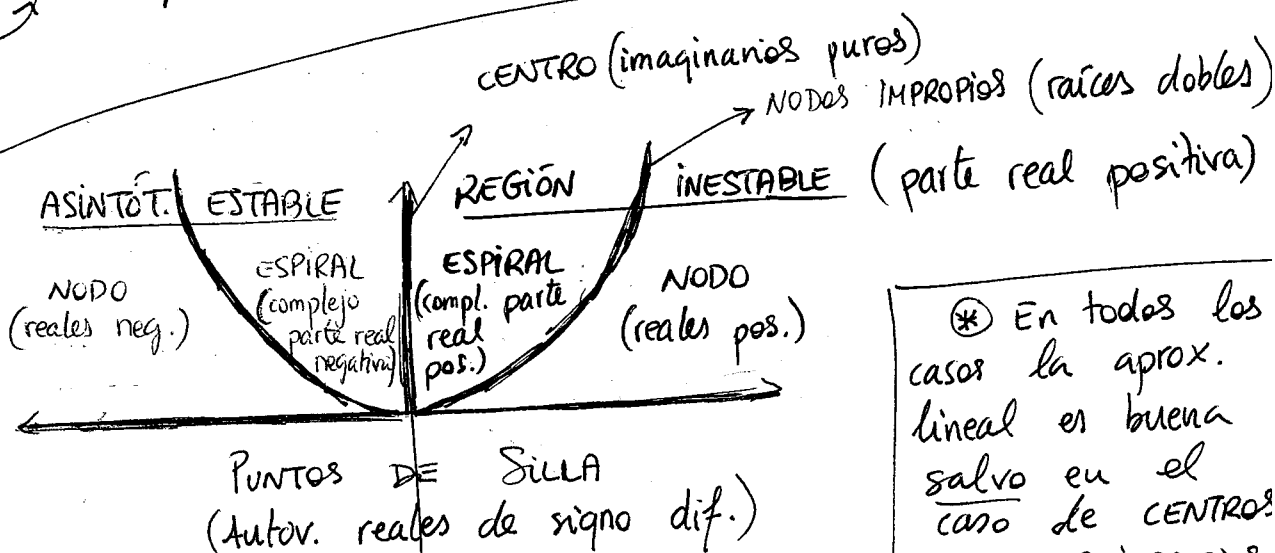 CENTRO (imaginarios puros)
NODOS IMPROPIOS (raíces dobles)
ASINTÓT. ESTABLE
REGIÓN INESTABLE (parte real positiva)
NODO
(reales neg.)
ESPIRAL
(complejo
parte real
negativa)
ESPIRAL
(compl. parte
real
pos.)
NODO
(reales pos.)
PUNTOS DE SILLA
(Autov. reales de signo dif.)
* En todos los
casos la aprox.
lineal es buena
salvo en el
caso de CENTROS